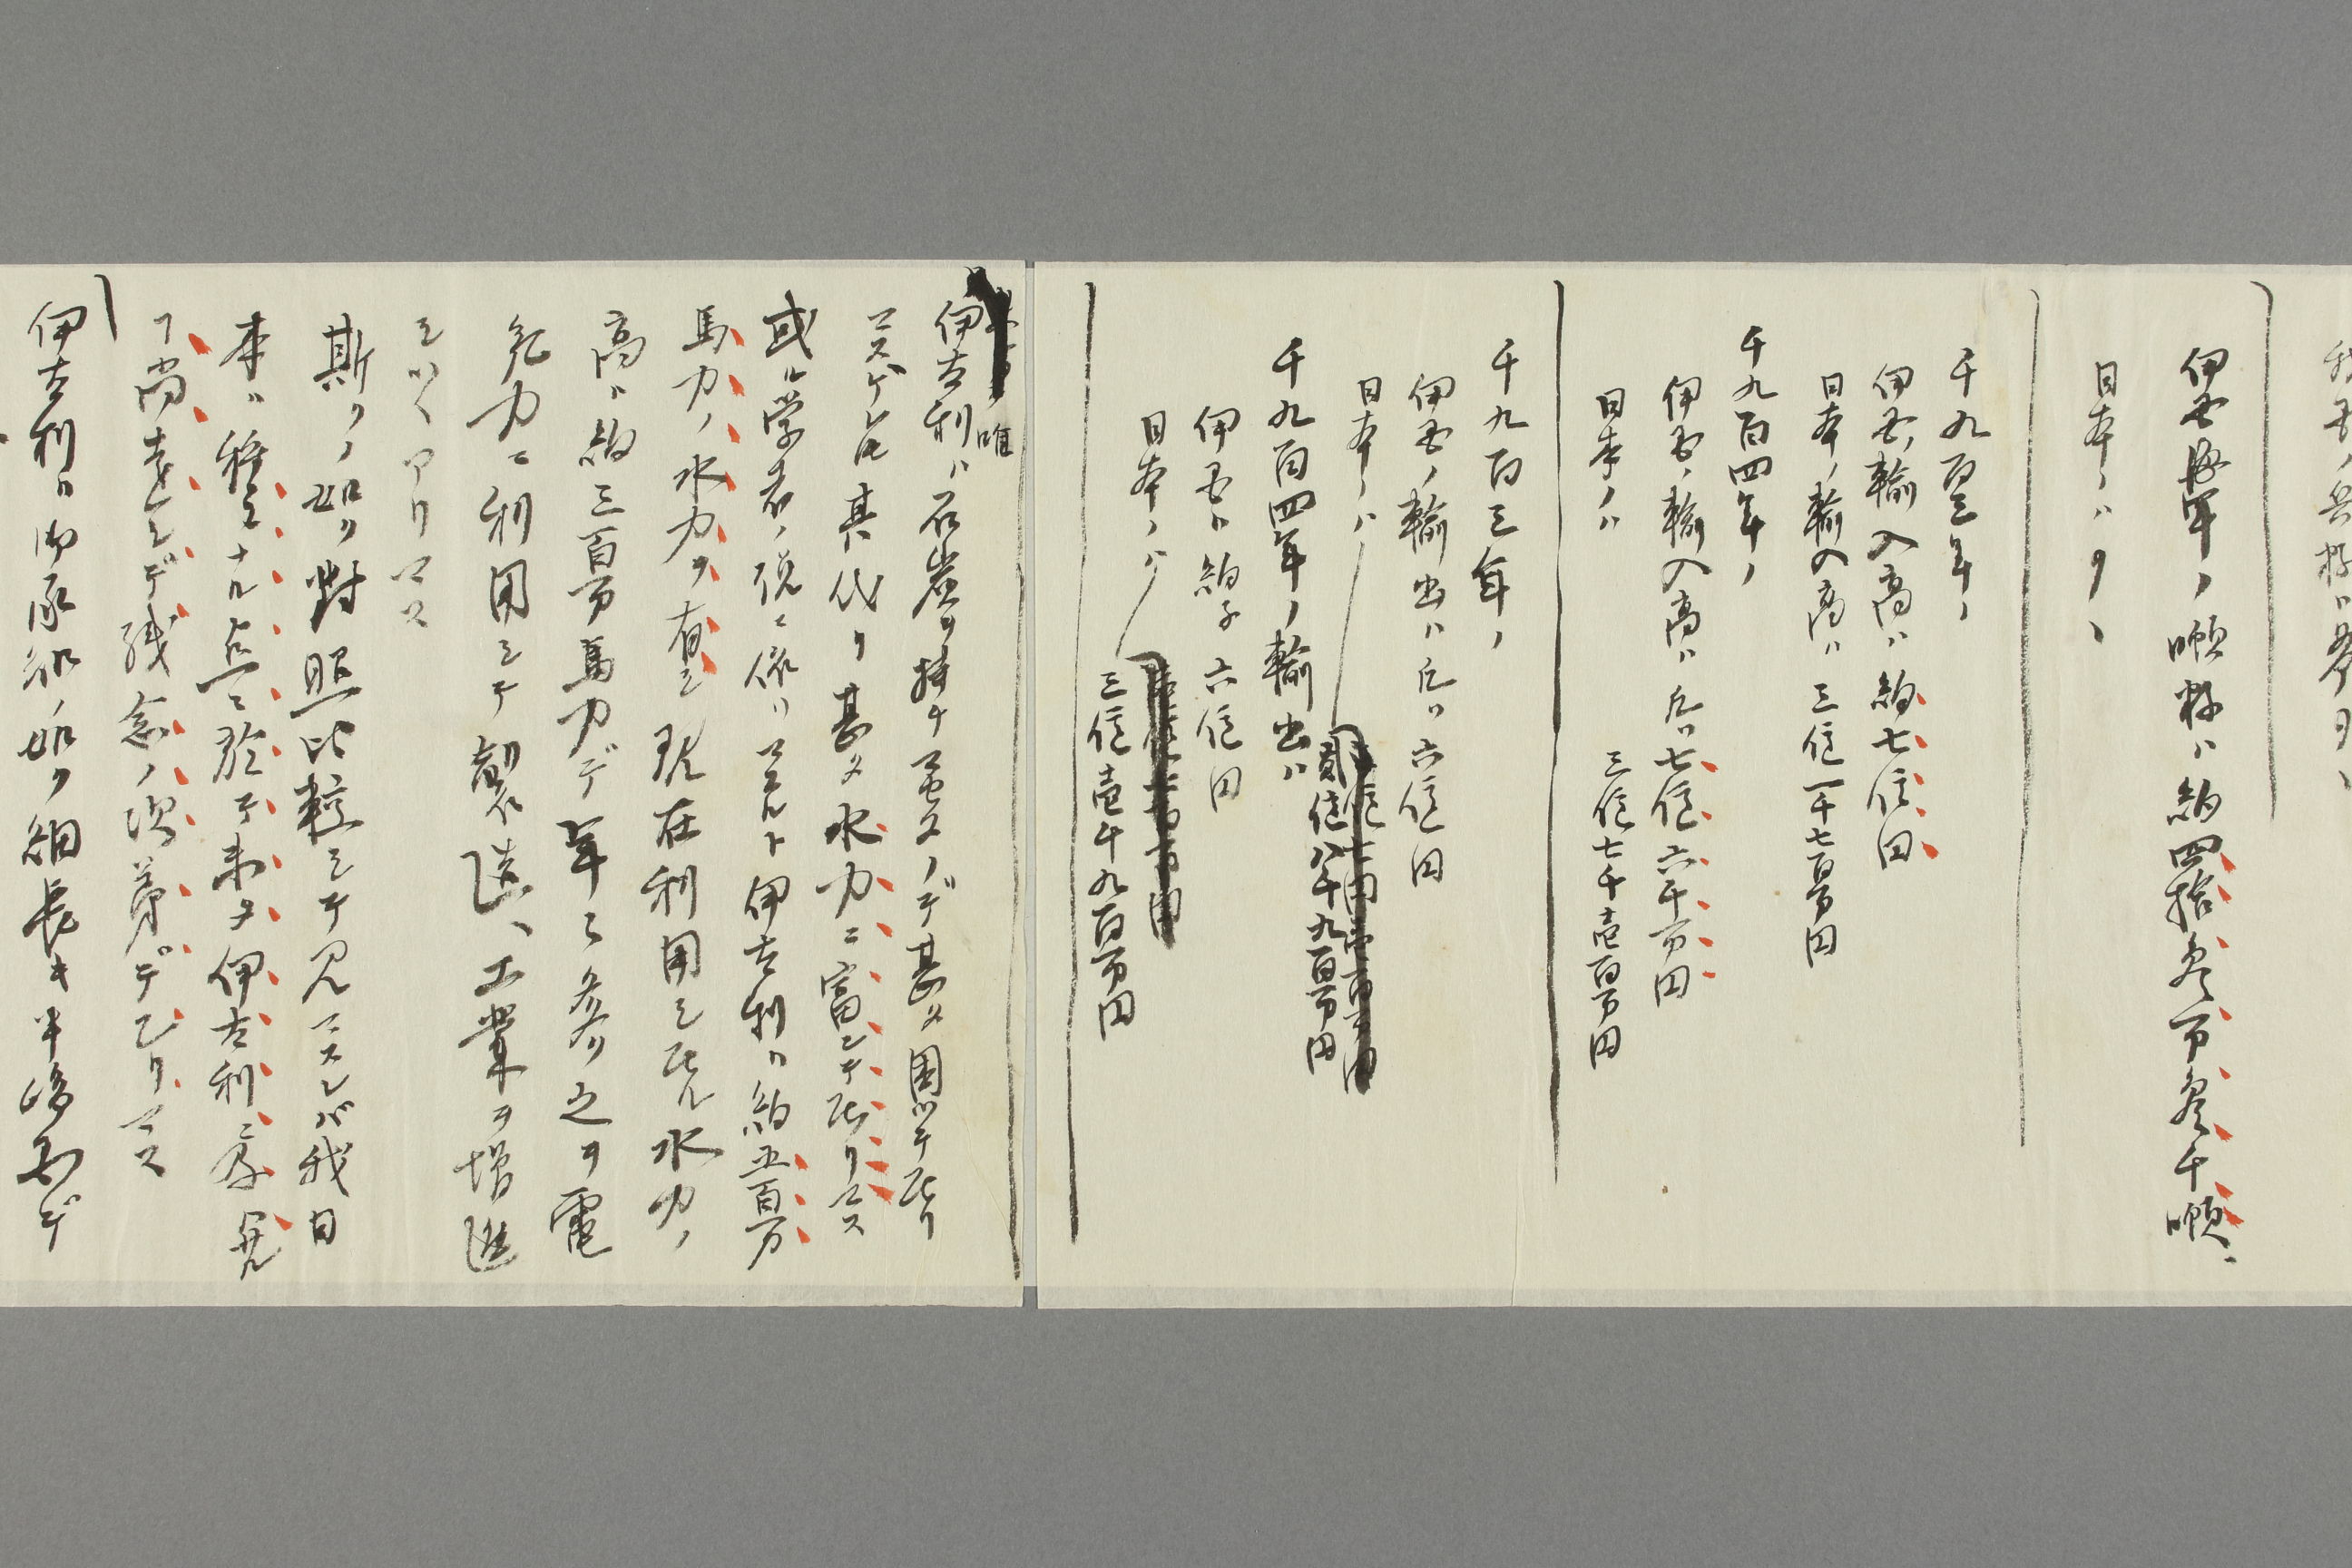 伊国海軍ノ噸数ハ約四拾参万参千噸、
日本ノハ
千九百三年ノ
伊国ノ輸入高ハ約七億円
日本ノ輸入高ハ三億一千七百万円
千九百四年ノ
伊国ノ輸入高ハ凡ソ七億六千万円
日本ノハ 三億七千壱百万円
千九百三年ノ
伊国ノ輸出ハ凡ソ六億円
日本ノハ 貳億八千九百万円
千九百四年ノ輸出ハ
伊国ハ約子六億円
日本ノハ 三億壱千九百万円
唯
伊太利ハ石炭ヲ持チマセヌノデ甚タ困ツテ居リ
マスケレ𪜈其代リ甚タ水力ニ富ンテ居リマス
或ル学者ノ説ニ依リマスルト伊太利ハ約五百万
馬力ノ水力ヲ有シ現在利用シ居ル水力ノ
高ハ約三百万馬力デ年々参リ之ヲ電
気力ニ利用シテ製造、工業ヲ増進
シツヽアリマス
斯クノ如ク対照比較シテ見マスレバ我日
本ハ種々ナル点ニ於テ未タ伊太利ニ及ハ
尚遠シデ残念ノ次第デアリマス
伊太利ハ御承知ノ如ク細長キ半島国デ